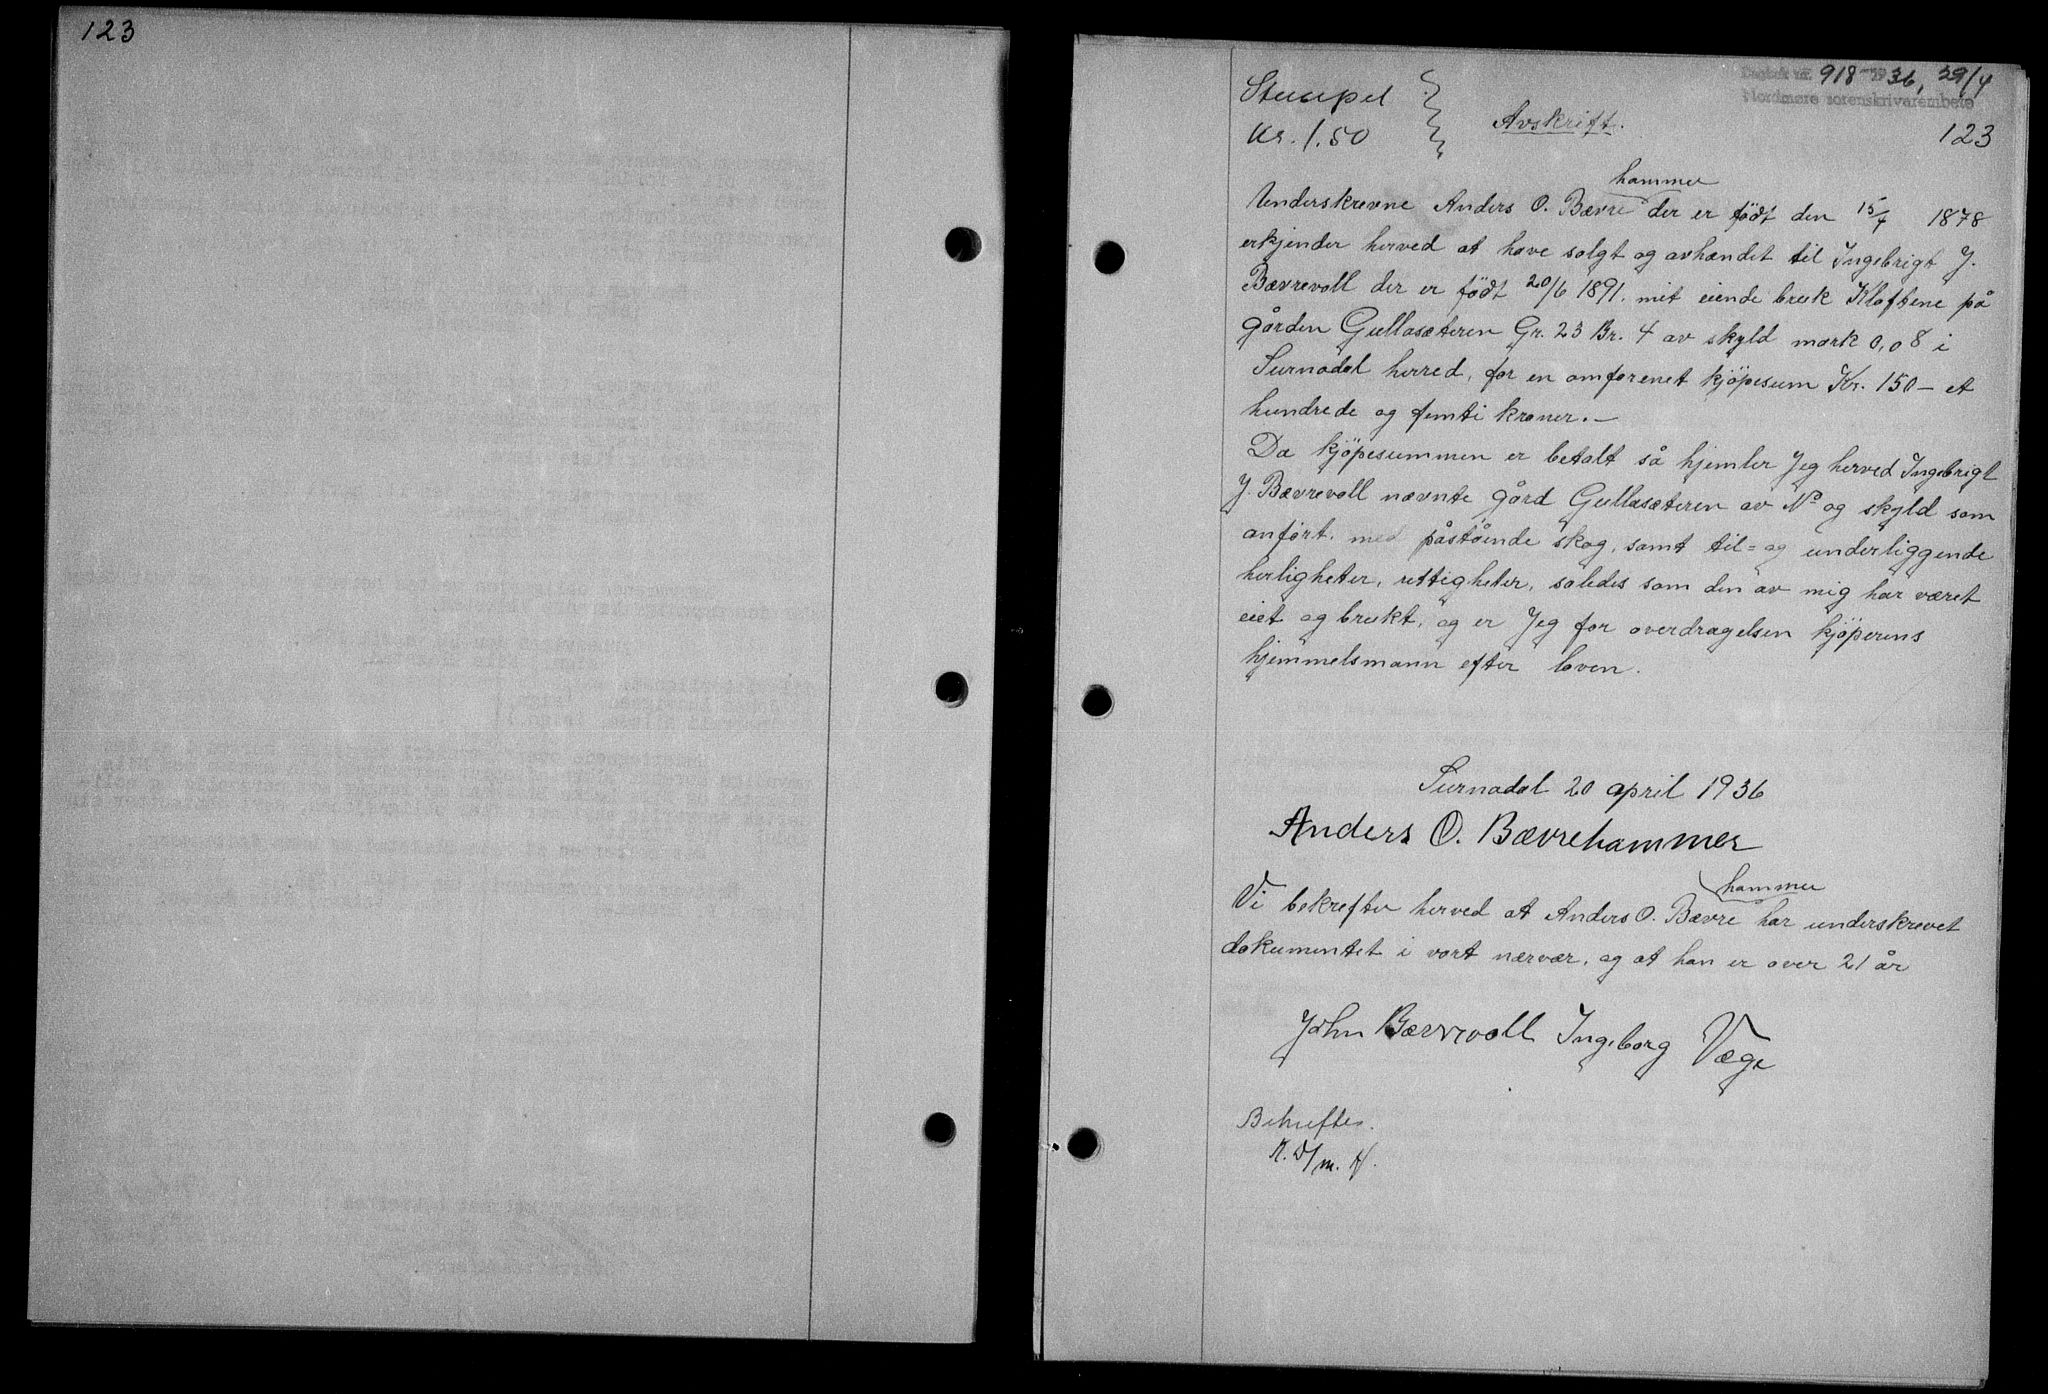 123
Dagbok nr. 918-1936, 29/4
Nordmøre sorenskrivarembete
123
Stempel
Kr. 1.50
Avskrift.
hammer
Underskrevne Anders O. Bævre der er født den 15/4 1878
erkjender herved at have solgt og avhændet til Ingebrigt J.
Bævrevoll der er født 20/6 1891. mit eiende bruk Kløftene på
gården Gullasæteren Gr. 23 Br. 4 av skyld mark 0,08 i
Surnadal herred, for en omforenet kjöpesum Kr. 150 - et
hundrede og femti kroner. -
Da kjöpesummen er betalt så hjemler Jeg herved Ingebrigt
J. Bævrevoll nævnte gård Gullasæteren av No og skyld som
anfört. med påstående skog, samt til= og underliggende
herligheter, rettigheter, således som den av mig har været
eiet og brukt, og er Jeg for overdragelsen kjöperens
hjemmelsmann efter loven.
Surnadal 20 april 1936
Anders O. Bævrehammer
hammer
Vi bekrefter herved at Anders O. Bævre har underskrevet
dokumentet i vort nærvær, og at han er over 21 år
John Bævrevoll Ingeborg Væge
Bekreftes.